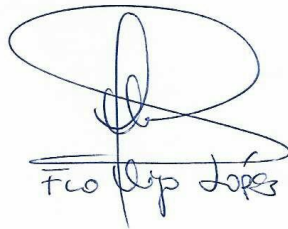 Fco López